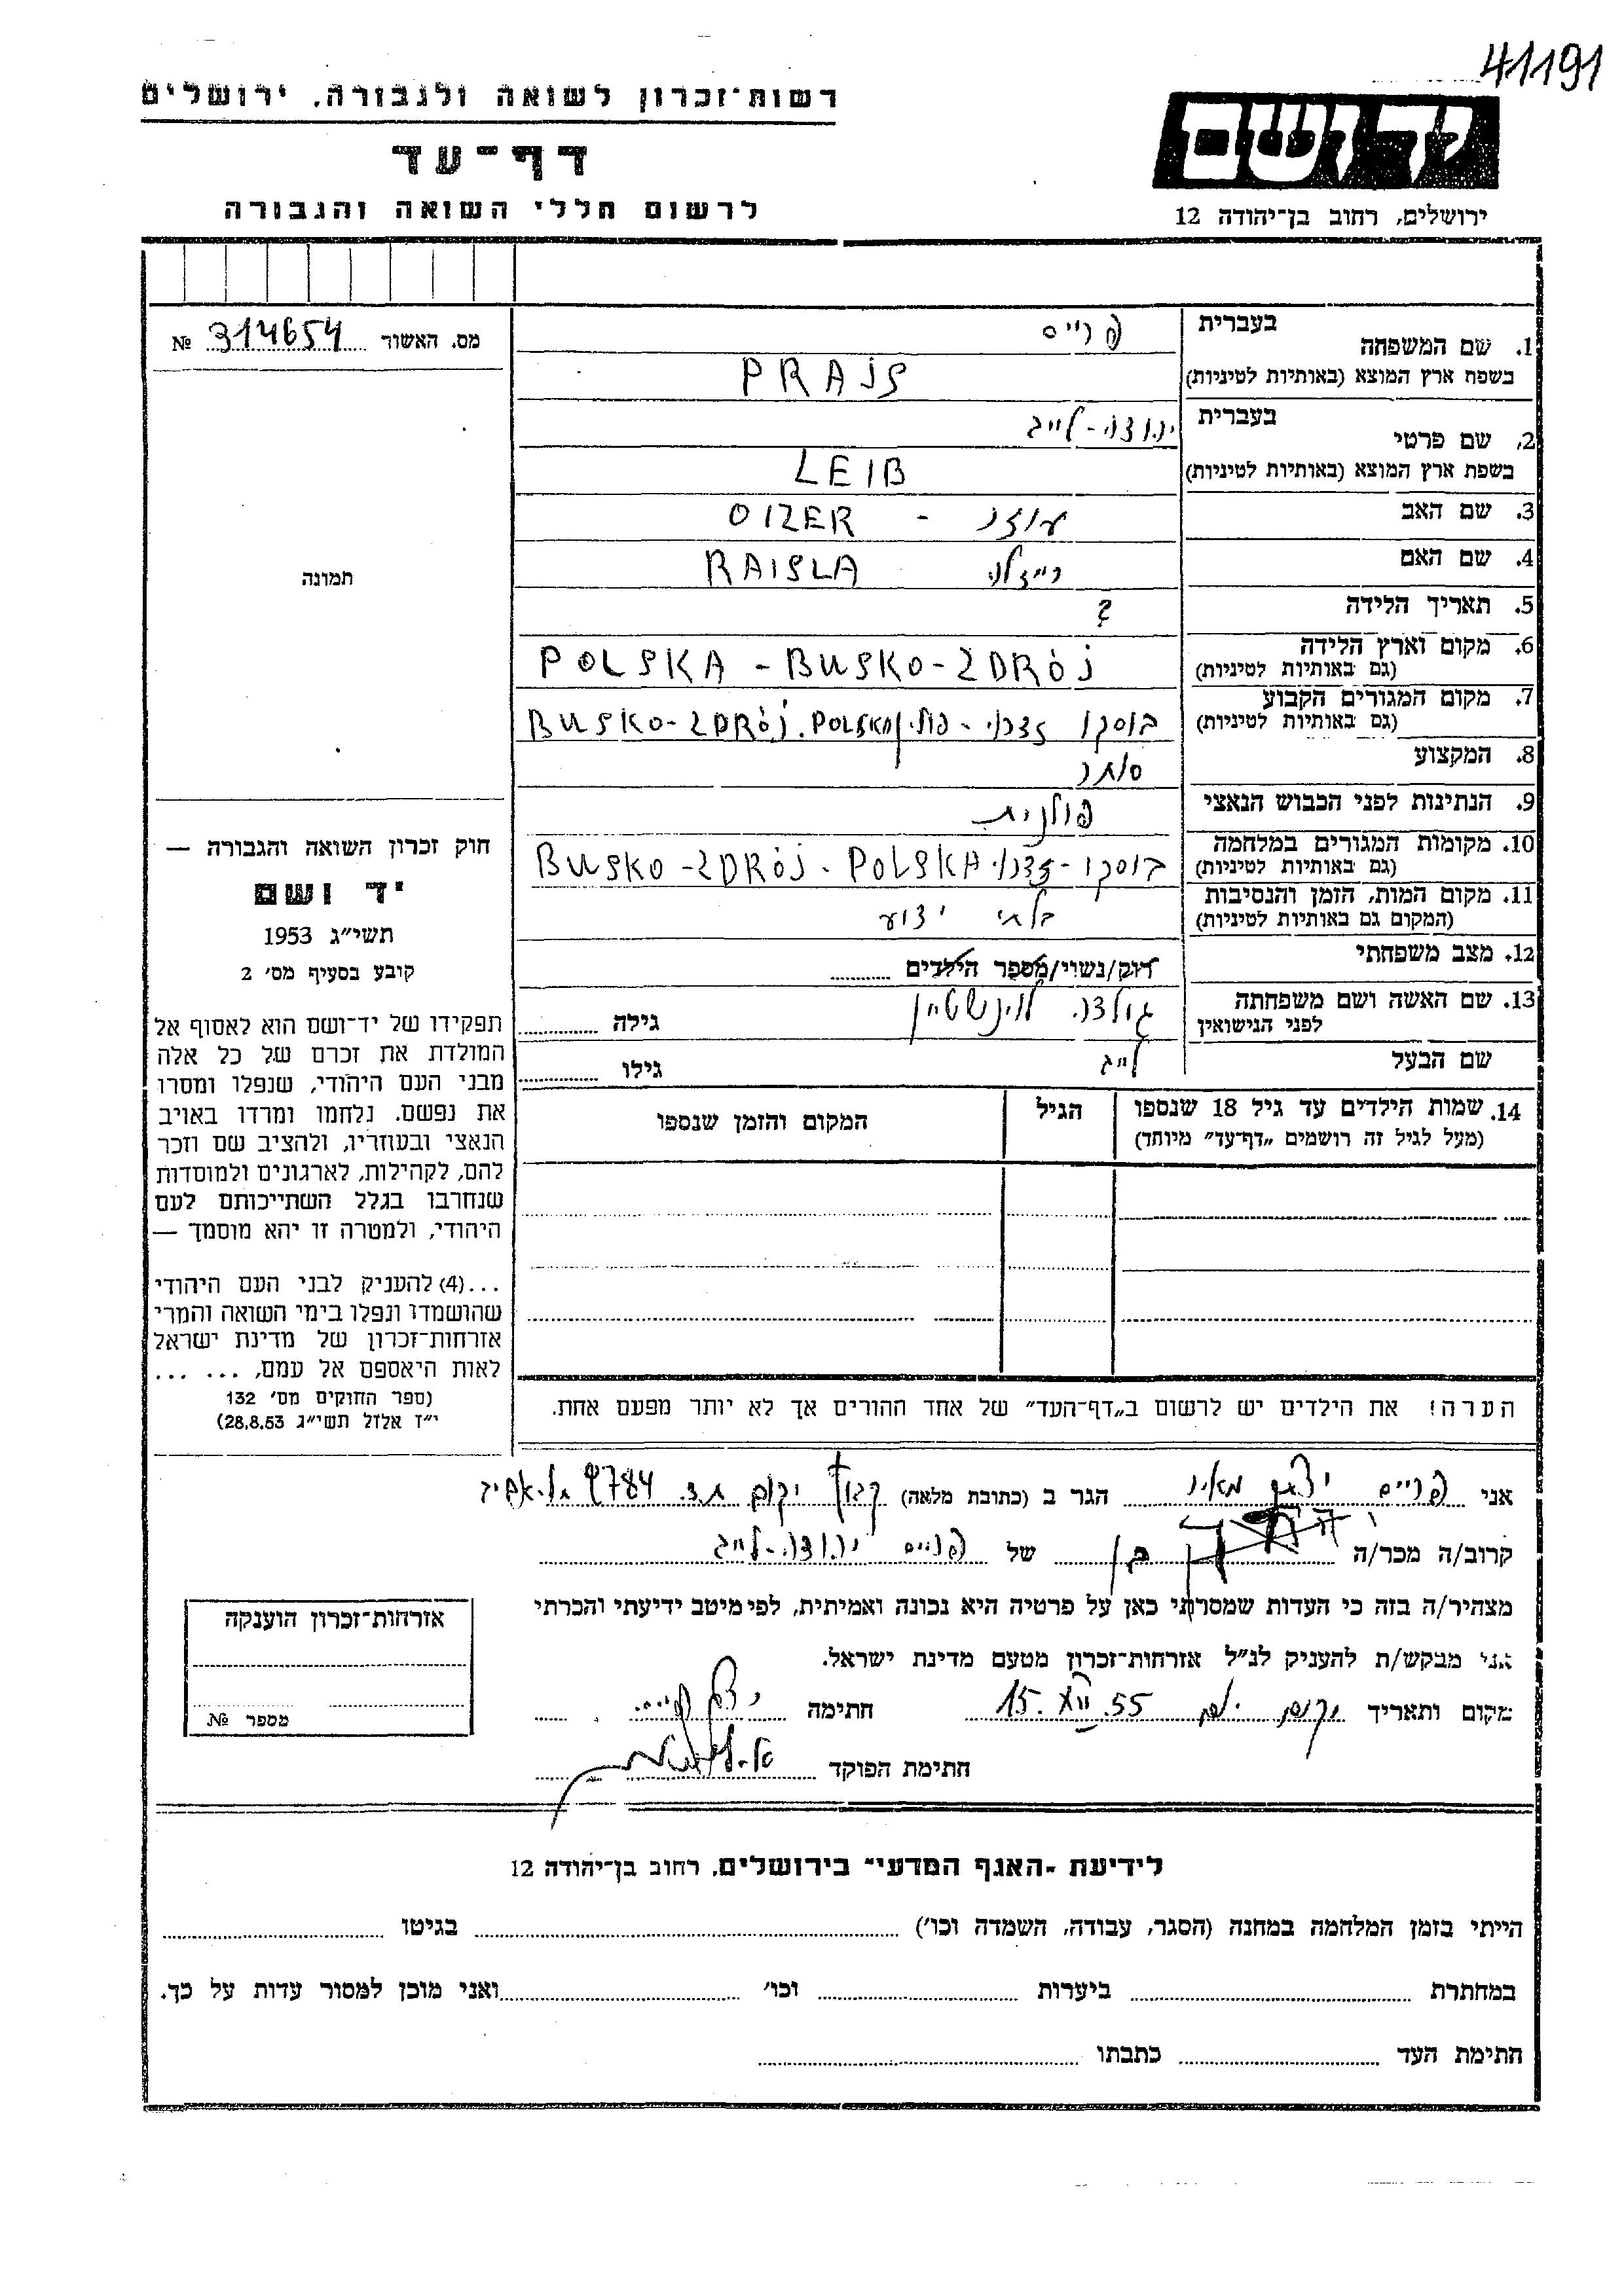 41191
רשות־זכרון לשואה ולגבורה, ירושלים
דף־עד
לרשום חללי השואה והגבורה
יד ושם
ירושלים, רחוב בן־יהודה 12
מס. האשור 314654 №
1. שם המשפחה בעברית פרייס
בשפת ארץ המוצא (באותיות לטיניות) PRAJS
2. שם פרטי בעברית יהודה-לייב
בשפת ארץ המוצא (באותיות לטיניות) LEIB
3. שם האב עוזר - OIZER
4. שם האם רייזלה RAISLA
5. תאריך הלידה ?
6. מקום וארץ הלידה POLSKA - BUSKO - ZDRÓJ
(גם באותיות לטיניות)
7. מקום המגורים הקבוע בוסקו זדרוי - פולין BUSKO-ZDRÓJ. POLSKA
(גם באותיות לטיניות)
8. המקצוע סוחר
9. הנתינות לפני הכבוש הנאצי פולנית
10. מקומות המגורים במלחמה בוסקו - זדרוי BUSKO - ZDRÓJ - POLSKA
(גם באותיות לטיניות)
11. מקום המות, הזמן והנסיבות בלתי ידוע
(המקום גם באותיות לטיניות)
12. מצב משפחתי רוק/נשוי/מספר הילדים
13. שם האשה ושם משפחתה גולדה לוינשטיין גילה
לפני הנישואין
שם הבעל לייב גילו
14. שמות הילדים עד גיל 18 שנספו הגיל המקום והזמן שנספו
(מעל לגיל זה רושמים „דף־עד״ מיוחד)
הערה! את הילדים יש לרשום ב„דף־העד״ של אחד ההורים אך לא יותר מפעם אחת.
תמונה
חוק זכרון השואה והגבורה —
יד ושם
תשי״ג 1953
קובע בסעיף מס׳ 2
תפקידו של יד־ושם הוא לאסוף אל
המולדת את זכרם של כל אלה
מבני העם היהודי, שנפלו ומסרו
את נפשם. נלחמו ומרדו באויב
הנאצי ובעוזריו, ולהציב שם וזכר
להם, לקהילות, לארגונים ולמוסדות
שנחרבו בגלל השתייכותם לעם
היהודי, ולמטרה זו יהא מוסמך —
...(4) להעניק לבני העם היהודי
שהושמדו ונפלו בימי השואה והמרי
אזרחות־זכרון של מדינת ישראל
לאות היאספם אל עמם, ... ...
(ספר החוקים מס׳ 132
י״ז אלול תשי״ג 28.8.53)
אני פרייס יצחק מאיר הגר ב (כתובת מלאה) קבוץ יקום ת.ד. 9784 תל-אביב
קרוב/ה מכר/ה בן של פרייס יהודה-לייב
מצהיר/ה בזה כי העדות שמסרתי כאן על פרטיה היא נכונה ואמיתית, לפי מיטב ידיעתי והכרתי
אני מבקש/ת להעניק לנ״ל אזרחות־זכרון מטעם מדינת ישראל.
מקום ותאריך 15. XII. 55 חתימה
חתימת הפוקד
אזרחות־זכרון הוענקה
מספר №
לידיעת -האגף המדעי״ בירושלים, רחוב בן־יהודה 12
הייתי בזמן המלחמה במחנה (הסגר, עבודה, השמדה וכו׳) בגיטו
במחתרת ביערות וכו׳ ואני מוכן למסור עדות על כך.
חתימת העד כתבתו